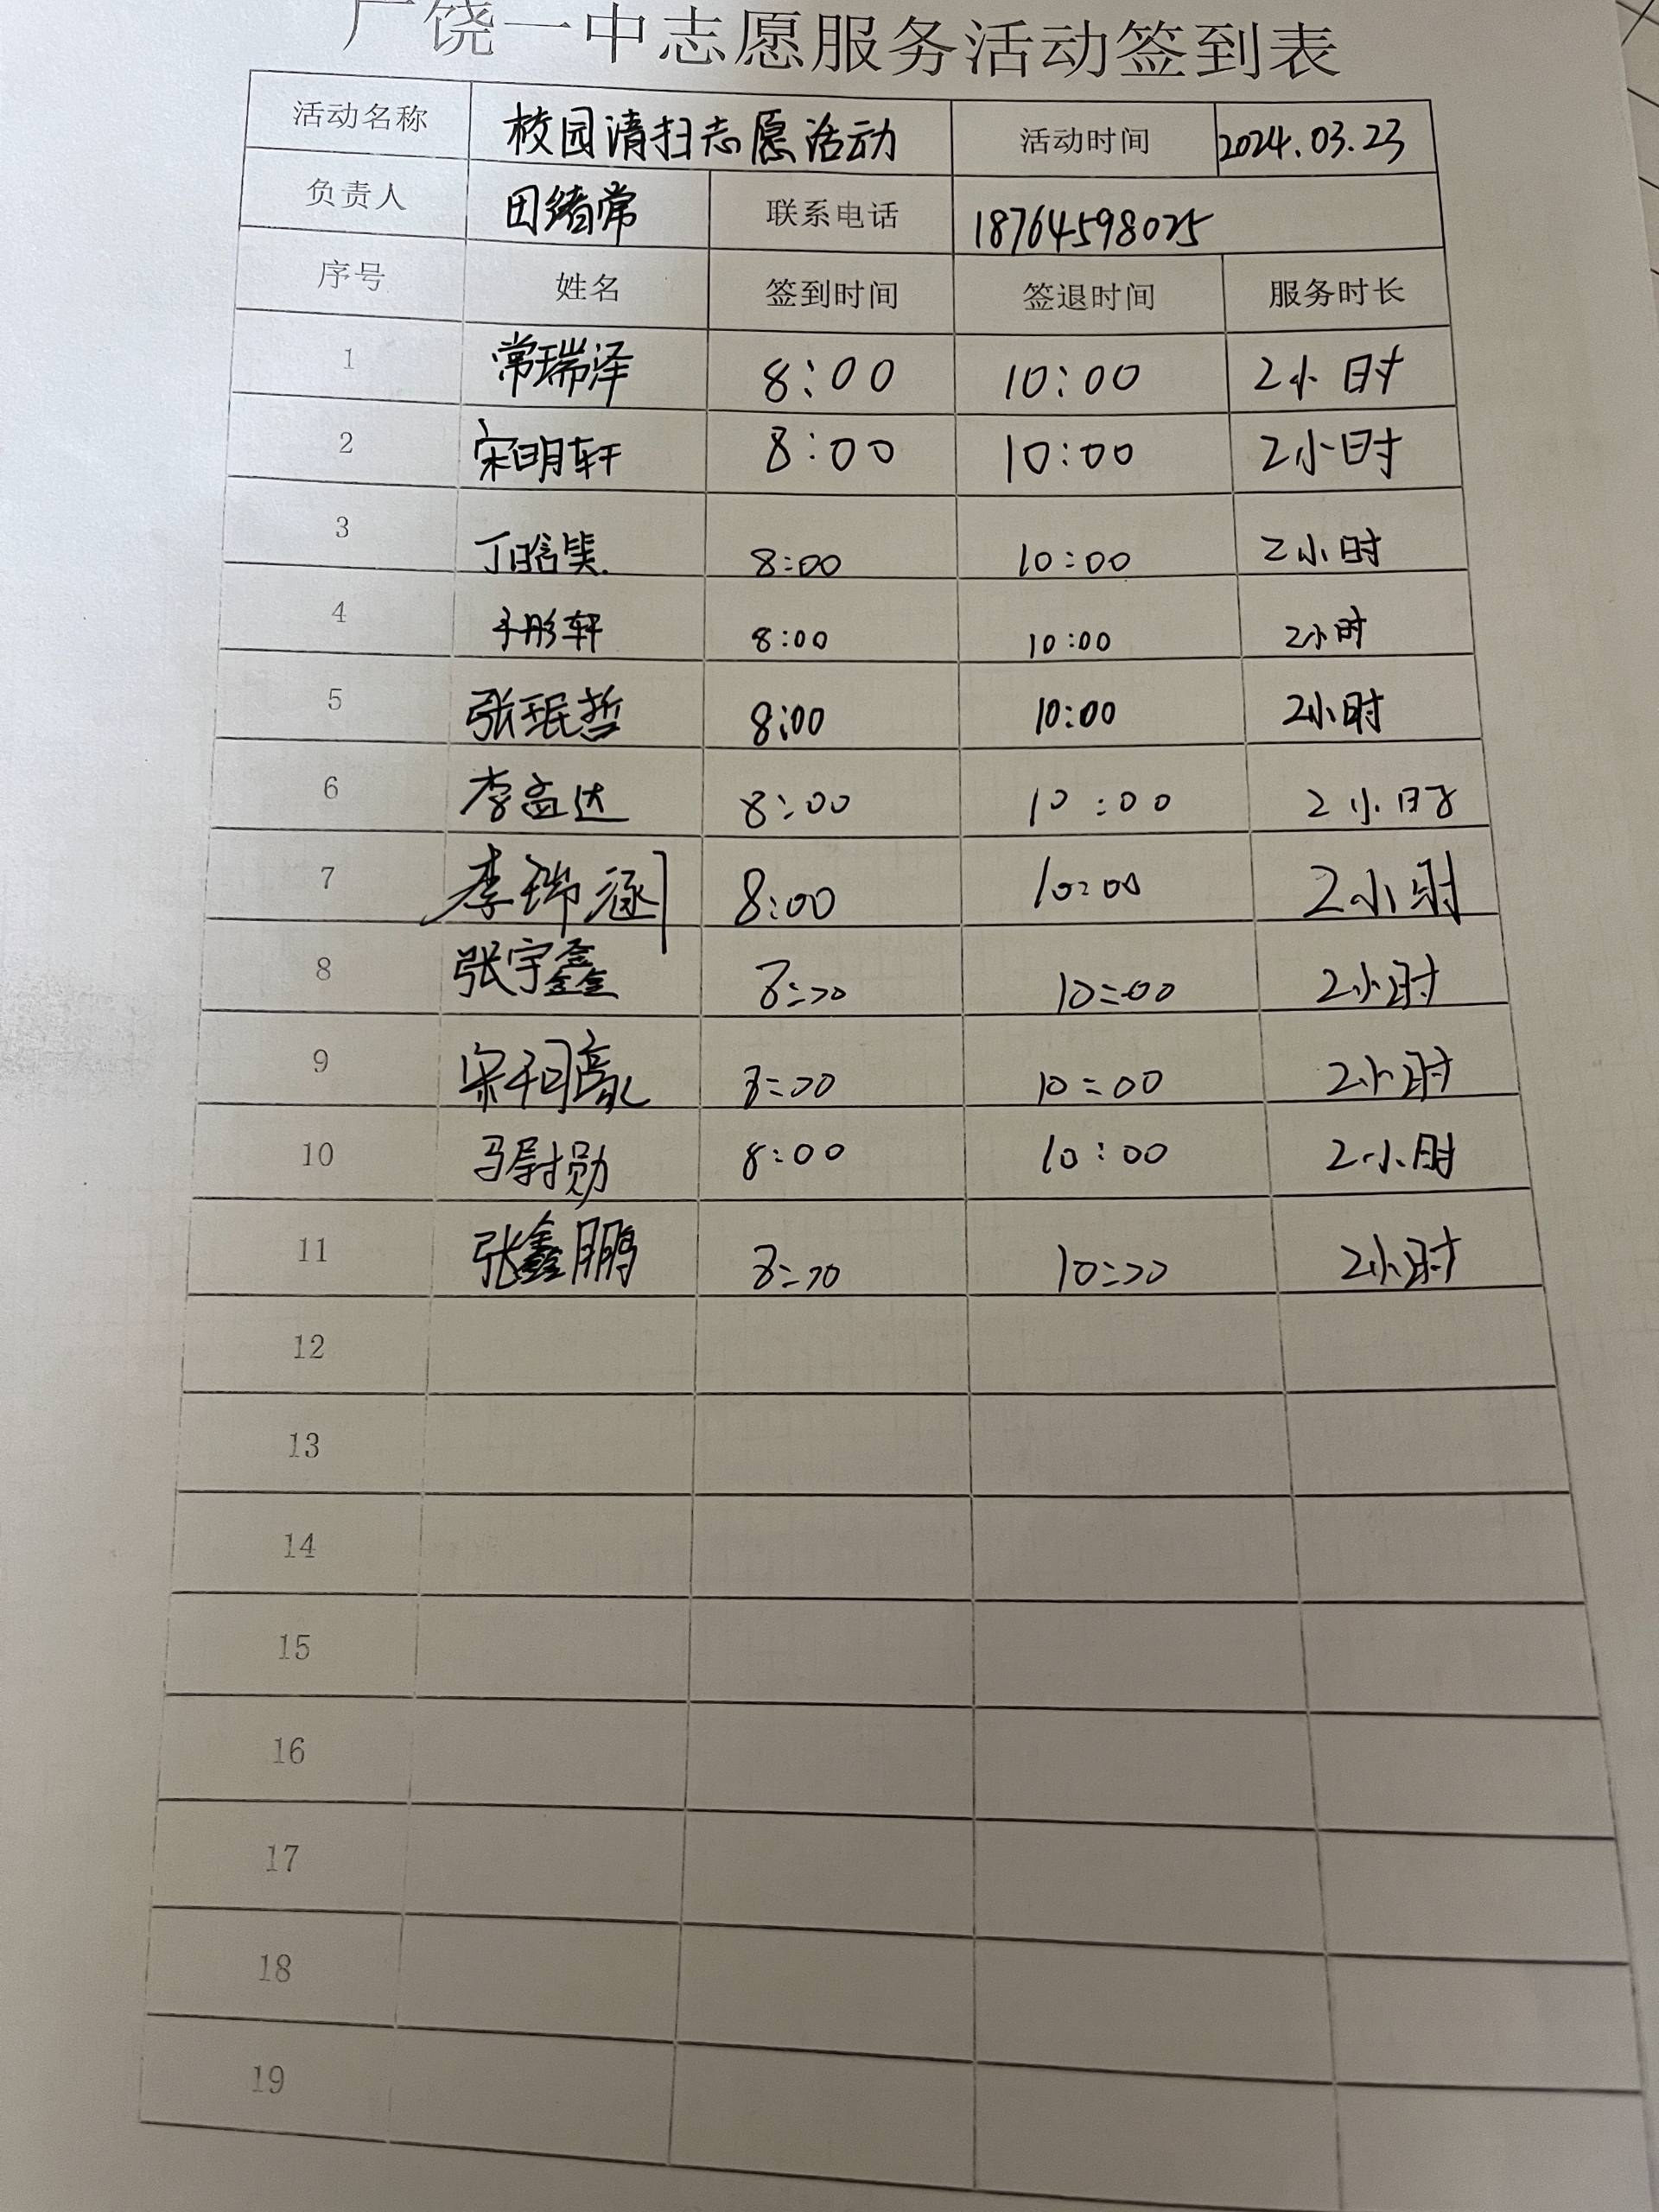 广饶一中志愿服务活动签到表
活动名称 校园清扫志愿活动 活动时间 2024.03.23
负责人 田绪常 联系电话 18764598025
序号 姓名 签到时间 签退时间 服务时长
1 常瑞泽 8:00 10:00 2小时
2 宋明轩 8:00 10:00 2小时
3 丁晗笑 8:00 10:00 2小时
4 彤轩 8:00 10:00 2小时
5 张珉哲 8:00 10:00 2小时
6 李孟达 8:00 10:00 2小时
7 李瑞涵 8:00 10:00 2小时
8 张宇鑫 8:00 10:00 2小时
9 宋 8:00 10:00 2小时
10 马尉勋 8:00 10:00 2小时
11 张鑫鹏 8:00 10:00 2小时
12
13
14
15
16
17
18
19